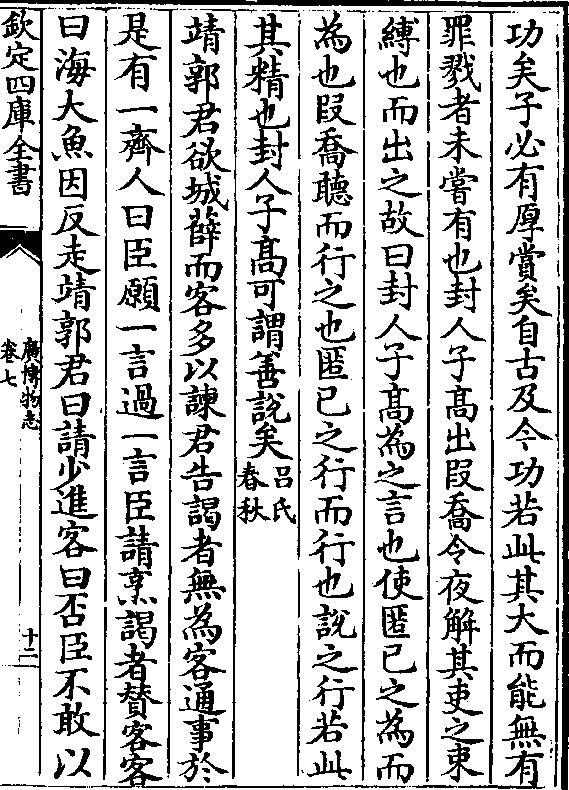 功矣子必有厚賞矣自古及今功若此其大而能無有
罪戮者未嘗有也封人子髙出段喬令夜解其吏之束
縛也而出之故曰封人子髙為之言也使匿己之為而
為也段喬聽而行之也匿己之行而行也說之行若此
其精也封人子髙可謂善說矣呂氏春秋
靖郭君欲城薛而客多以諫君告謁者無為客通事於
是有一齊人曰臣願一言過一言臣請烹謁者賛客客
曰海大魚因反走靖郭君曰請少進客曰否臣不敢以
欽定四庫全書
廣博物志
卷七
十二